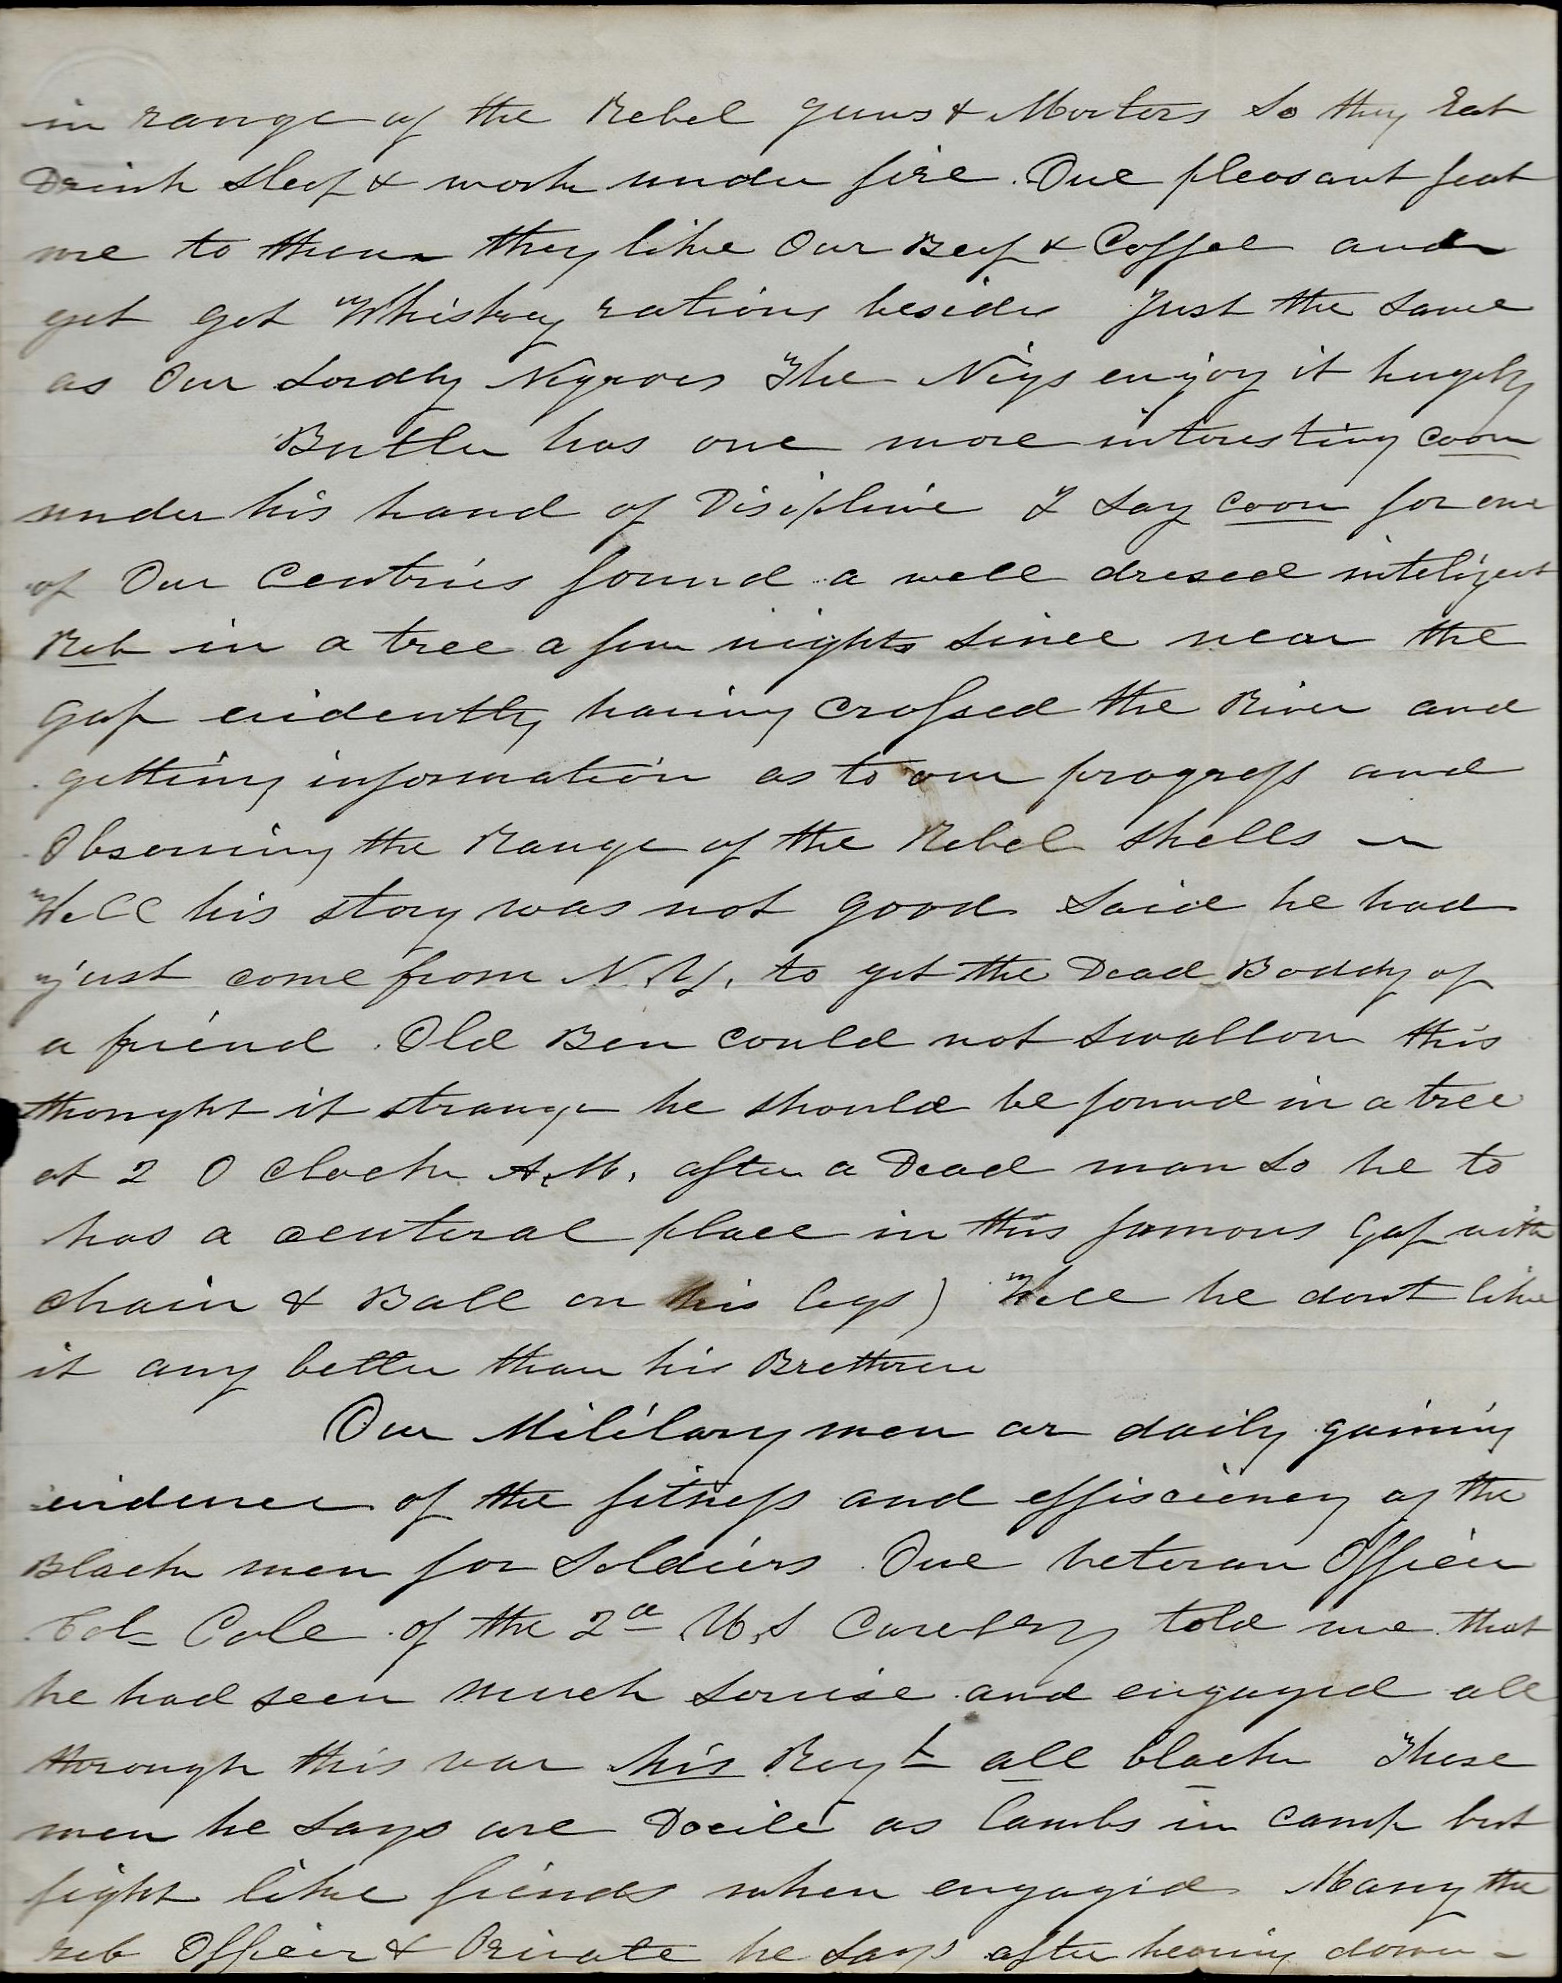 in range of the Rebel guns & Morters So they Eat
Drink sleep & work under fire. One pleasant feat
ure to them they like Our Beef & Coffee and
yet get Whiskey rations besides Just the same
as Our Lordly Negroes The Nigs enjoy it hugely
Butler has one more interesting coon
under his hand of Disipline I say coon for one
of Our Centries found a well dresed inteligent
Reb in a tree a few nights since near the
gap evidently having crossed the River and
getting information as to our progress and
Observing the Range of the Rebel shells
Well his story was not good Said he had
just come from N.Y. to get the Dead Boddy of
a friend. Old Ben could not swallow this
thought it strange he should be found in a tree
at 2 O clock A.M. after a Dead man So he to
has a centeral place in this famous Gap with
chain & Ball on his legs) Well he dont like
it any better than his Bretheren
Our Military men ar daily gaining
evidence of the fitness and effisciency of the
Black men for Soldiers. One veteran Officer
Col Cole of the 2d U.S Cavelry told me that
he had seen much Servise and engaged all
through this war his Regt all black These
men he says are Docile as lambs in camp but
fight like fiends when engaged Many the
reb Officer & Private he says after heaving down